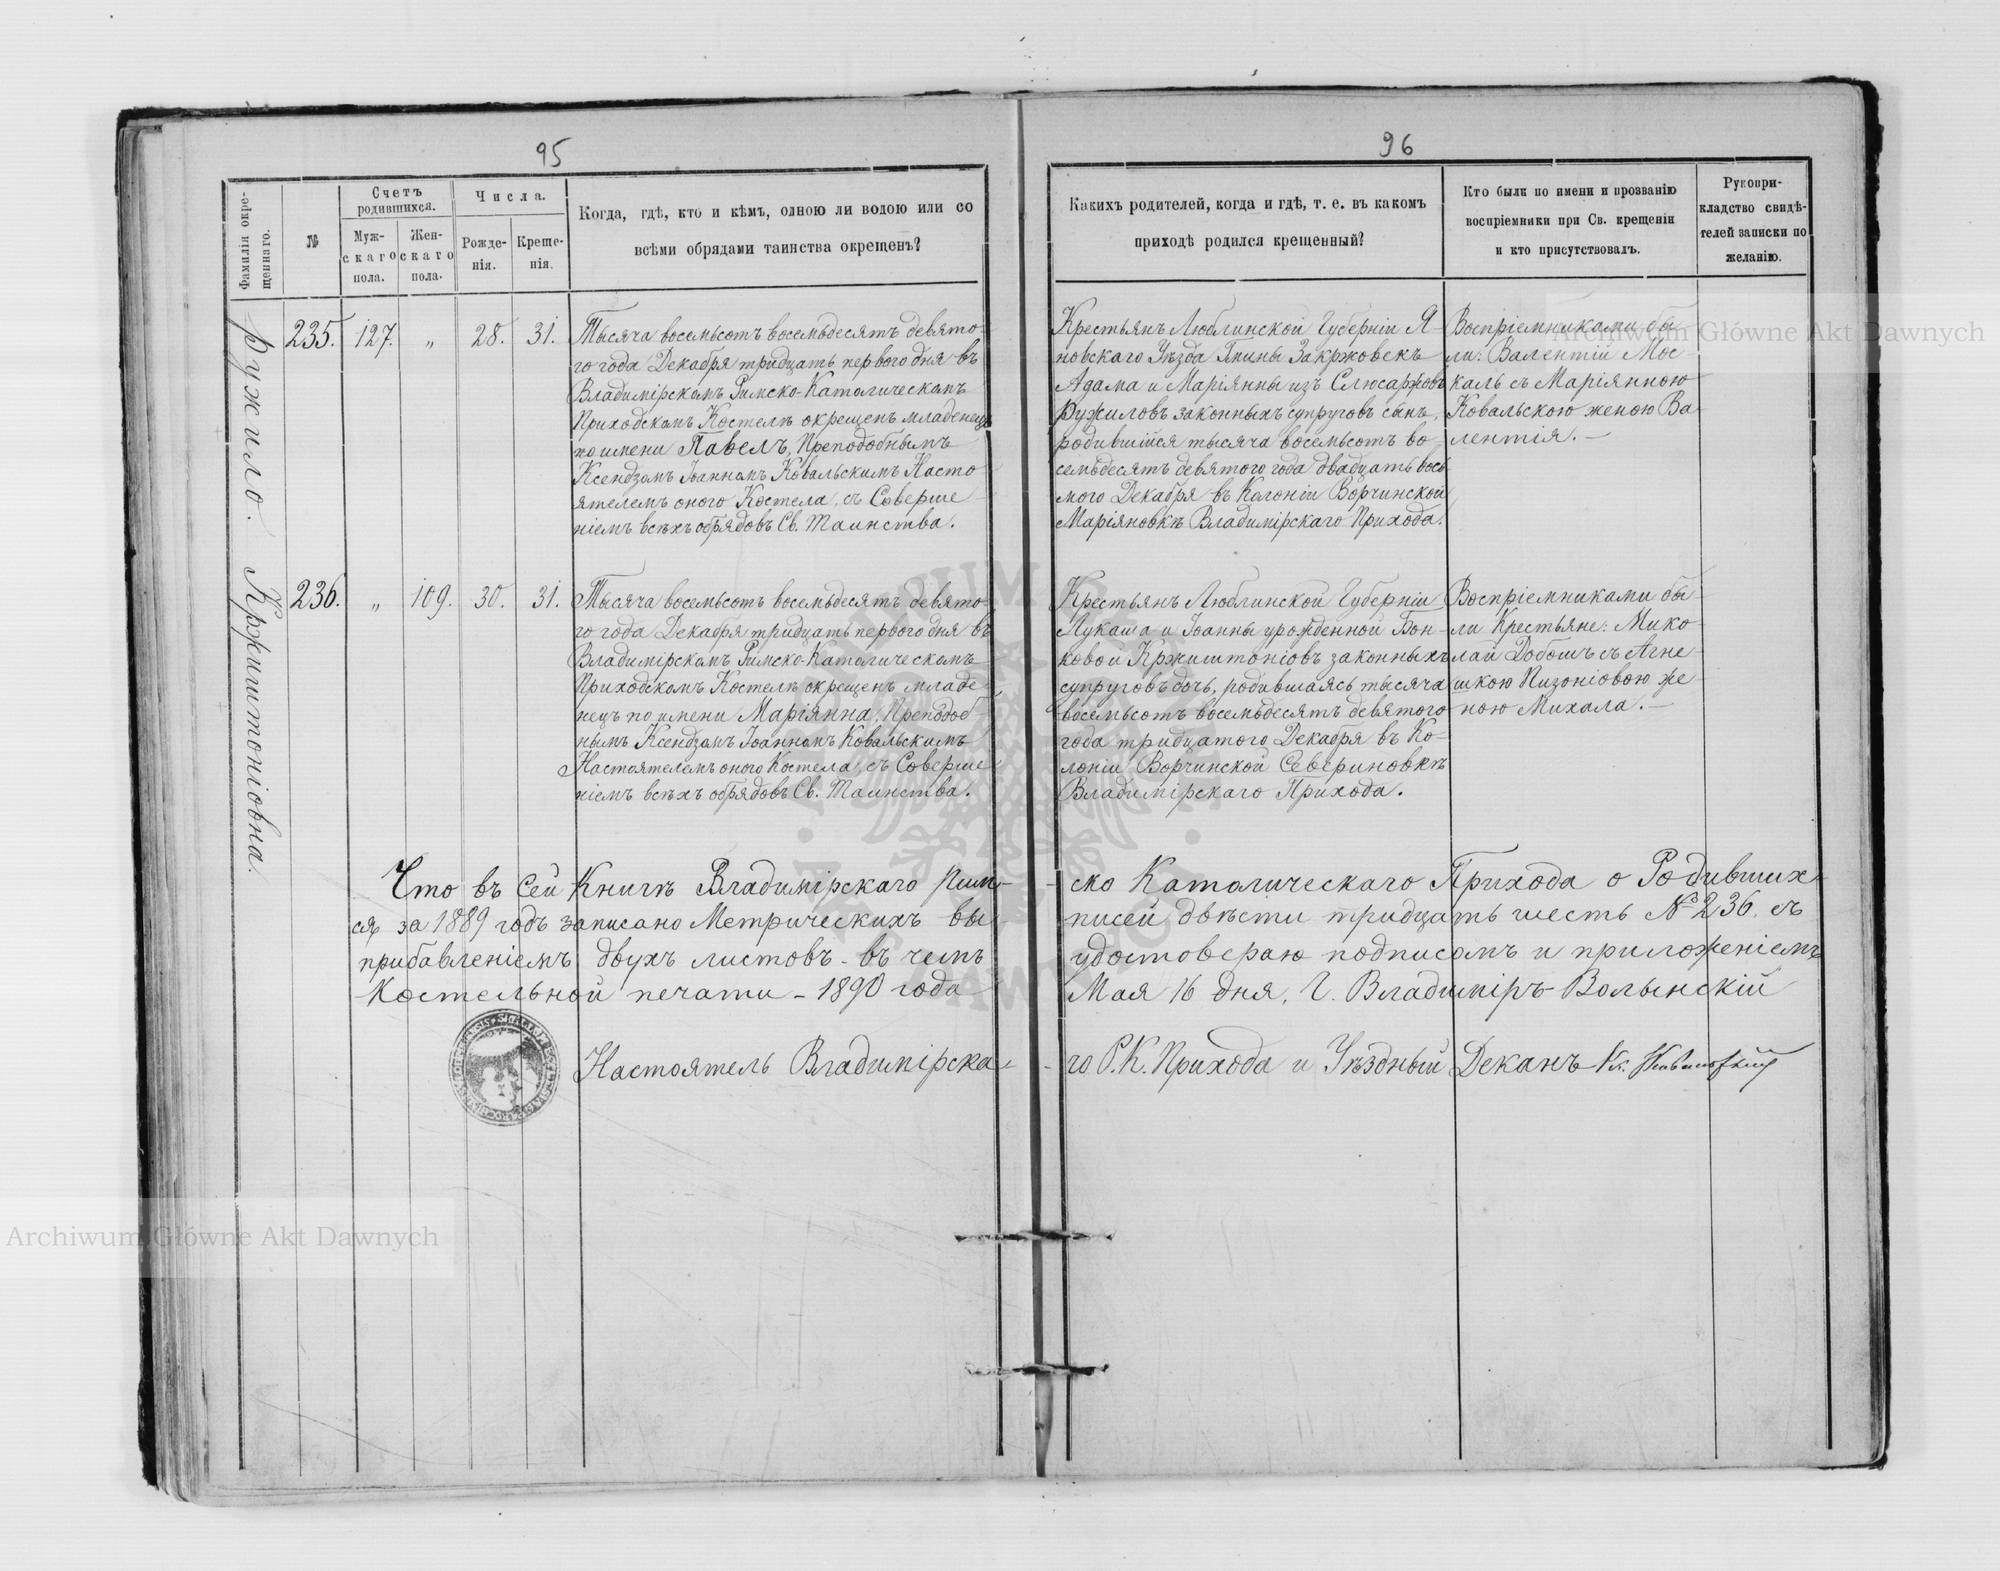 95
96
Фамилія окре-
щеннаго.
№
Счетъ
родившихся.
Муж-
скаго
пола.
Жен-
скаго
пола.
Числа.
Рожде-
нія.
Креще-
нія.
Когда, гдѣ, кто и кѣмъ, одною ли водою или со
всѣми обрядами таинства окрещенъ?
Какихъ родителей, когда и гдѣ, т. е. въ какомъ
приходѣ родился крещенный?
Кто были по имени и прозванію
воспріемники при Св. крещеніи
и кто присутствовалъ.
Рукопри-
кладство свидѣ-
телей записки по
желанію.
Ружило.
235.
127.
„
28.
31.
Тысяча восемьсотъ восемьдесятъ девято-
го года Декабря тридцать перваго дня въ
Владимірскомъ Римско-Католическомъ
Приходскомъ Костелѣ окрещенъ младенецъ
по имени Павелъ, Преподобнымъ
Ксендзомъ Іоанномъ Ковальскимъ Насто
ятелемъ оного Костела, съ Соверше-
ніемъ всѣхъ обрядовъ Св. Таинства.
Крестьянъ Люблинской Губерніи Я-
новскаго Уѣзда Гмины Закржовекъ
Адама и Маріянны изъ Слюсаржовъ
Ружиловъ законныхъ супруговъ сынъ,
родившійся тысяча восемьсотъ во-
семьдесятъ девятого года двадцать вось
мого Декабря въ Колоніи Ворчинской
Маріяновкѣ Владимірскаго Прихода.
Воспріемниками бы-
ли: Валентій Мос-
каль съ Маріянною
Ковальскою женою Ва-
лентія.-
Кржиштоніовна.
236.
„
109.
30.
31.
Тысяча восемьсотъ восемьдесятъ девято-
го года Декабря тридцать первого дня въ
Владимірскомъ Римско-Католическомъ
Приходскомъ Костелѣ окрещенъ младе-
нецъ по имени Маріянна, Преподоб-
нымъ Ксендзомъ Іоанномъ Ковальскимъ
Настоятелемъ оного Костела, съ Соверше-
ніемъ всѣхъ обрядовъ Св. Таинства.
Крестьянъ Люблинской Губерніи
Лукаша и Іоанны урожденной Бон-
ковой Кржиштоніовъ законныхъ
супруговъ дочь, родившаясь тысяча
восемьсотъ восемьдесятъ девятого
года тридцатого Декабря въ Ко-
лоніи Ворчинской Севериновкѣ
Владимірскаго Прихода.
Воспріемниками бы-
ли Крестьяне: Мико-
лай Добошъ съ Агне-
шкою Пизоніовою же
ною Михала.-
Что въ сей Книгѣ Владимірскаго Рим-
-ско Католическаго Прихода о Родивших-
ся за 1889 годъ записано Метрическихъ вы
писей двѣсти тридцать шесть № 236. съ
прибавленіемъ двухъ листовъ - въ чемъ
удостоверяю подписомъ и приложеніемъ
Костельной печати - 1890 года
Мая 16 дня, Г. Владиміръ-Волынскій
Настоятель Владимірска-
-го Р. К. Прихода и Уѣздный Деканъ Кс.
Archiwum Główne Akt Dawnych
Archiwum Główne Akt Dawnych